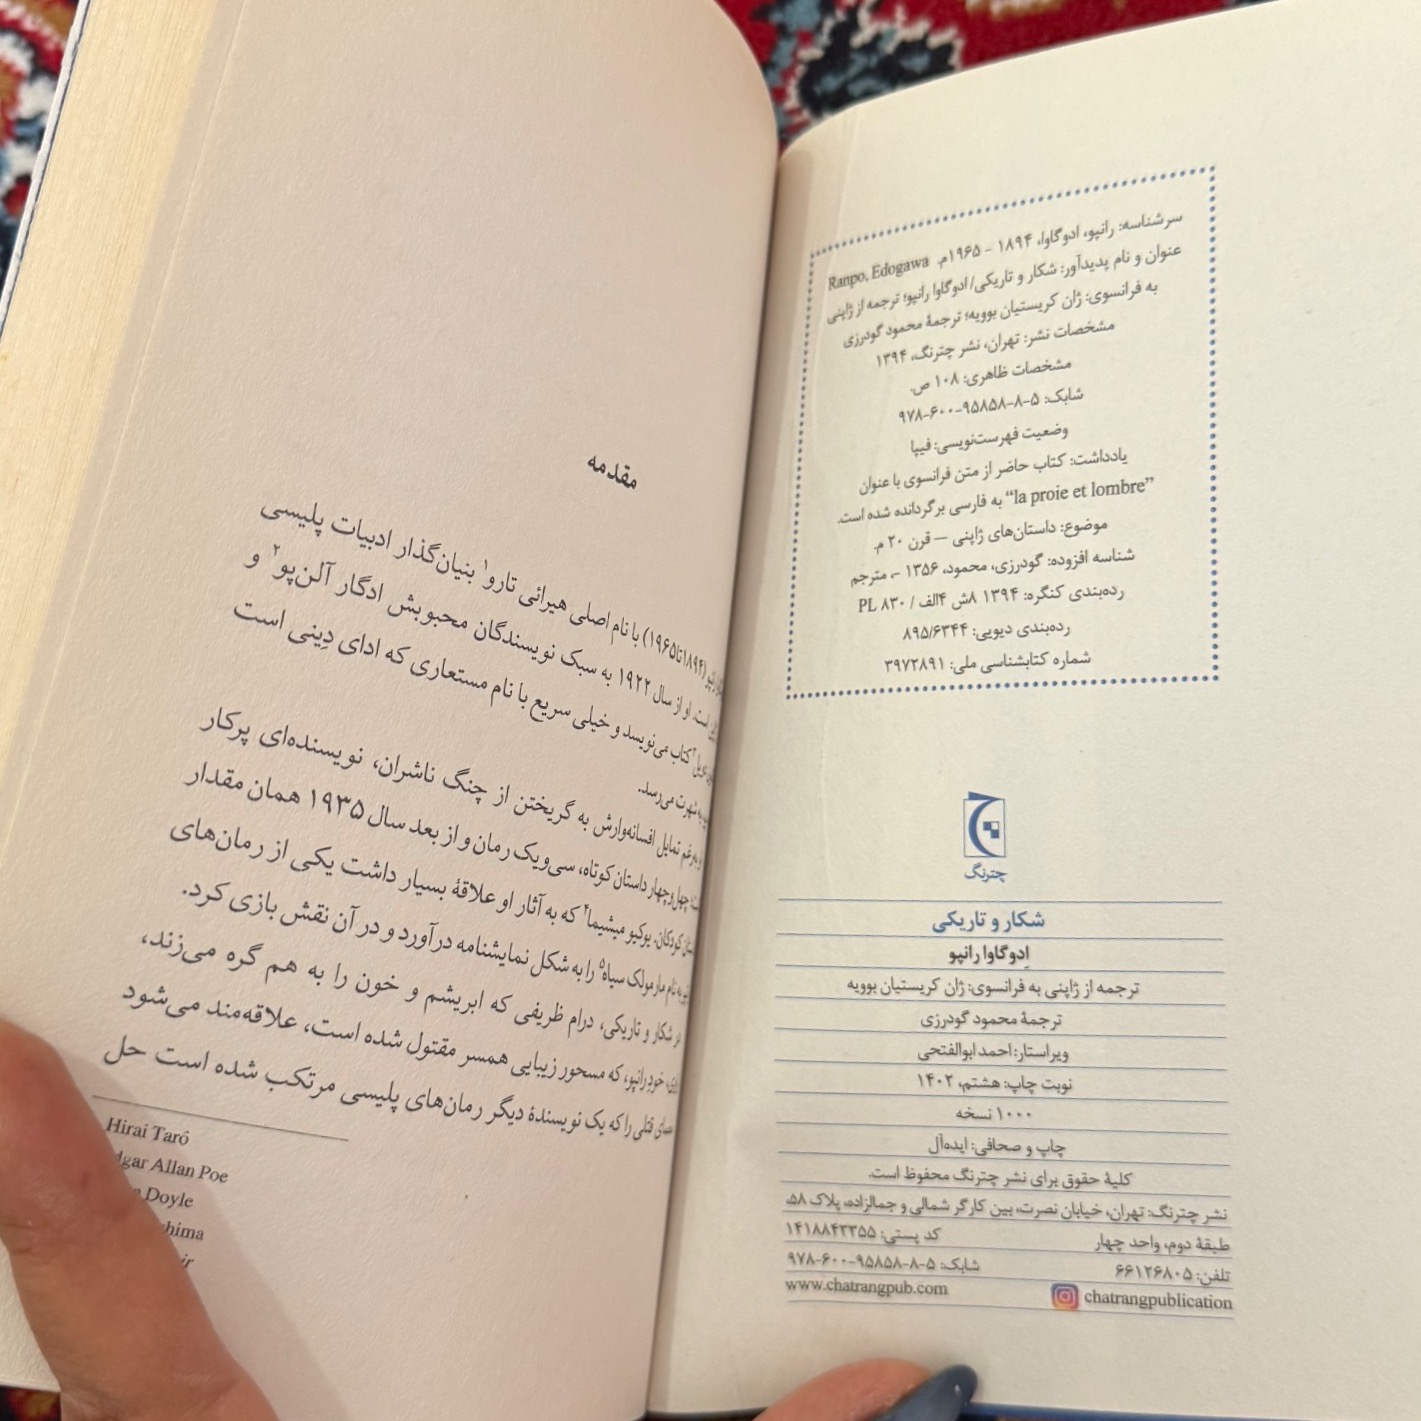 سرشناسه: رانپو، ادوگاوا، ۱۸۹۴ - ۱۹۶۵م. Ranpo, Edogawa
عنوان و نام پدیدآور: شکار و تاریکی/ ادوگاوا رانپو؛ ترجمه از ژاپنی
به فرانسوی: ژان کریستیان بوویه؛ ترجمهٔ محمود گودرزی
مشخصات نشر: تهران، نشر چترنگ، ۱۳۹۴
مشخصات ظاهری: ۱۰۸ ص.
شابک: ۵-۸-۹۵۸۵۸-۶۰۰-۹۷۸
وضعیت فهرست‌نویسی: فیپا
یادداشت: کتاب حاضر از متن فرانسوی با عنوان
“la proie et lombre” به فارسی برگردانده شده است.
موضوع: داستان‌های ژاپنی — قرن ۲۰ م.
شناسه افزوده: گودرزی، محمود، ۱۳۵۶ -، مترجم
رده‌بندی کنگره: ۱۳۹۴ ۸ش ۴الف / PL ۸۳۰
رده‌بندی دیویی: ۸۹۵/۶۳۴۴
شماره کتابشناسی ملی: ۳۹۷۲۸۹۱
چترنگ
شکار و تاریکی
اِدوگاوا رانپو
ترجمه از ژاپنی به فرانسوی: ژان کریستیان بوویه
ترجمهٔ محمود گودرزی
ویراستار: احمد ابوالفتحی
نوبت چاپ: هشتم، ۱۴۰۲
۱۰۰۰ نسخه
چاپ و صحافی: ایده‌آل
کلیهٔ حقوق برای نشر چترنگ محفوظ است.
نشر چترنگ: تهران، خیابان نصرت، بین کارگر شمالی و جمالزاده، پلاک ۵۸،
طبقهٔ دوم، واحد چهار کد پستی: ۱۴۱۸۸۴۳۳۵۵
تلفن: ۶۶۱۲۶۸۰۵ شابک: ۵-۸-۹۵۸۵۸-۶۰۰-۹۷۸
chatrangpublication www.chatrangpub.com
مقدمه
(۱۸۹۴تا۱۹۶۵) با نام اصلی هیرائی تارو۱ بنیان‌گذار ادبیات پلیسی
است. او از سال ۱۹۲۲ به سبک نویسندگان محبوبش ادگار آلن‌پو۲ و
کتاب می‌نویسد و خیلی سریع با نام مستعاری که ادای دِینی است
به شهرت می‌رسد.
تمایل افسانه‌وارش به گریختن از چنگ ناشران، نویسنده‌ای پرکار
چهل‌وچهار داستان کوتاه، سی‌ویک رمان و از بعد سال ۱۹۳۵ همان مقدار
کودکان. یوکیو میشیما۴ که به آثار او علاقهٔ بسیار داشت یکی از رمان‌های
به نام مارمولک سیاه۵ را به شکل نمایشنامه درآورد و در آن نقش بازی کرد.
در شکار و تاریکی، درام ظریفی که ابریشم و خون را به هم گره می‌زند،
خودِ رانپو، که مسحور زیبایی همسر مقتول شده است، علاقه‌مند می‌شود
قتلی را که یک نویسندهٔ دیگر رمان‌های پلیسی مرتکب شده است حل
Hirai Tarô
Allan Poe
Doyle